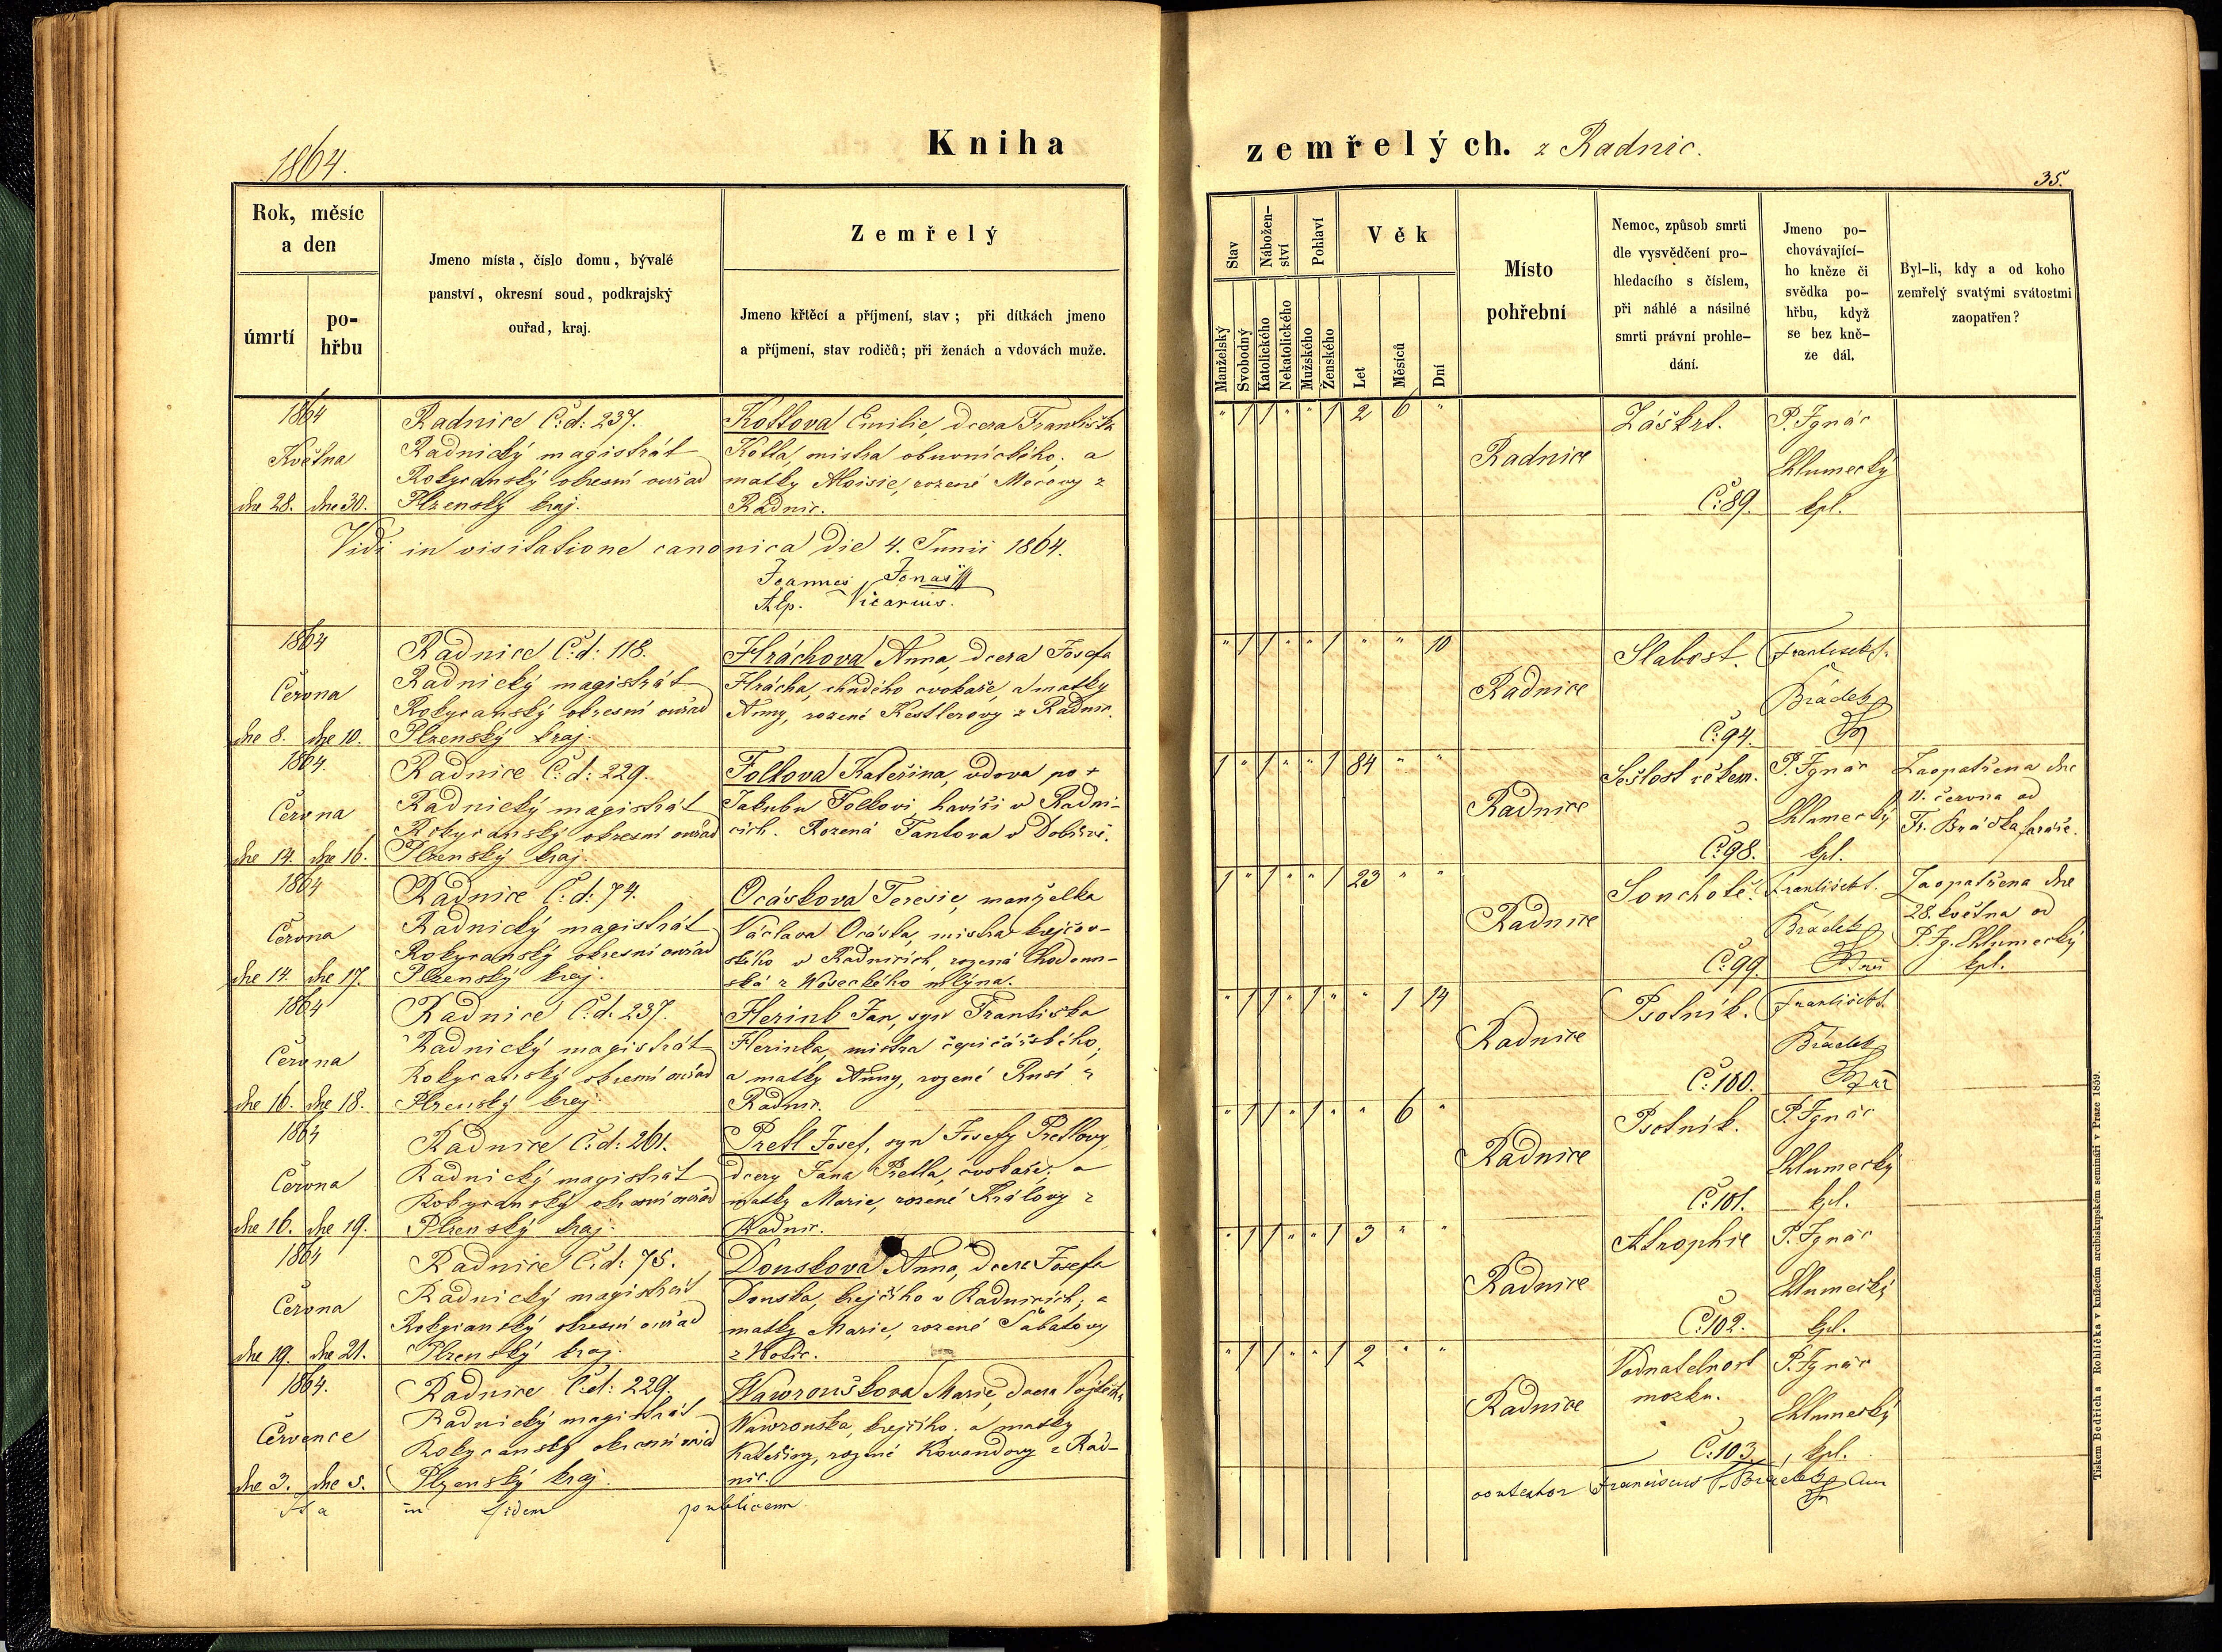 1864.
Kniha
zemřelých. z Radnic.
35.
Rok, měsíc
a den
úmrtí
po-
hřbu
Jmeno místa, číslo domu, bývalé
panství, okresní soud, podkrajský
ouřad, kraj.
Zemřelý
Jmeno křtěcí a příjmení, stav; při dítkách jmeno
a příjmení, stav rodičů; při ženách a vdovách muže.
Stav
Nábožen-
ství
Pohlaví
Věk
Manželský
Svobodný
Katolického
Nekatolického
Mužského
Ženského
Let
Měsíců
Dní
Místo
pohřební
Nemoc, způsob smrti
dle vysvědčení pro-
hledacího s číslem,
při náhlé a násilné
smrti právní prohle-
dání.
Jmeno po-
chovávající-
ho kněze či
svědka po-
hřbu, když
se bez kně-
ze dál.
Byl-li, kdy a od koho
zemřelý svatými svátostmi
zaopatřen?
1864
Května
dne 28. dne 30.
Radnice Č: d: 237.
Radnický magistrát
Rokycanský okresní ouřad
Plzenský kraj.
Kottova Emilie, dcera Františka
Kotta, mistra obuvnického; a
matky Aloisie, rozené
Radnic.
" 1 1 " " 1 2 6 "
Radnice
Záškrt.
Č: 89.
P. Ignác
Chlumecký
kpl.
Vidi in visitatione canonica die 4. Junii 1864.
Joannes Jonaš
Vicarius.
1864
Června
dne 8. dne 10.
Radnice Č: d: 118.
Radnický magistrát
Rokycanský okresní ouřad
Plzenský kraj.
Hráchova Anna, dcera Josefa
Hrácha, chudého cvokaře, a matky
Anny, rozené Kestlerovy z Radnic.
" 1 1 " " 1 " " 10
Radnice
Slabost.
Č: 94.
František
Brádek
1864.
Června
dne 14. dne 16.
Radnice Č: d: 229.
Radnický magistrát
Rokycanský okresní ouřad
Plzenský kraj.
Folkova Kateřina, vdova po +
Jakubu Folkovi havíři v Radni-
cích. Rozená Tantova v
1 " 1 " " 1 84 " "
Radnice
Sešlost věkem.
Č: 98.
P. Ignác
Chlumecký
kpl.
Zaopatřena dne
11. června od
Fr. Brádka faráře.
1864
Června
dne 14. dne 17.
Radnice Č: d: 74.
Radnický magistrát
Rokycanský okresní ouřad
Plzenský kraj.
Ocáskova Teresie, manželka
Václava Ocáska, mistra krejčov-
ského v Radnicích, rozená Chodoun-
ská z Woseckého mlýna.
1 " 1 " " 1 23 " "
Radnice
Souchotě.
Č: 99.
František
Brádek
Zaopatřena dne
28. května od
P. Ig. Chlumecký
kpl.
1864
Června
dne 16. dne 18.
Radnice Č: d: 237.
Radnický magistrát
Rokycanský okresní ouřad
Plzenský kraj.
Herink Jan, syn Františka
Herinka, mistra čepičářského;
a matky Anny, rozené z
Radnic.
" 1 1 " 1 " " 1 14
Radnice
Psotník.
Č: 100.
František
Brádek
1864
Června
dne 16. dne 19.
Radnice Č: d: 261.
Radnický magistrát
Rokycanský okresní ouřad
Plzenský kraj.
Pretl Josef, syn Josefy Pretlovy,
dcery Jana Pretla, cvokaře; a
matky Marie, rozené Královy z
Radnic.
" 1 1 " 1 " " 6 "
Radnice
Psotník.
Č: 101.
P. Ignác
Chlumecký
kpl.
1864
Června
dne 19. dne 21.
Radnice Č: d: 75.
Radnický magistrát
Rokycanský okresní ouřad
Plzenský kraj.
Douskova Anna, dcera Josefa
Douska, krejčího v Radnicích; a
matky Marie, rozené Sabatovy
z
" 1 1 " " 1 3 " "
Radnice
Atrophie
Č: 102.
P. Ignác
Chlumecký
kpl.
1864.
Července
dne 3. dne 5.
Radnice Č: d: 229.
Radnický magistrát
Rokycanský okresní ouřad
Plzenský kraj.
Wawrouškova Marie, dcera Vojtěcha
Wawrouska, krejčího, a matky
Kateřiny, rozené Kovandovy z Rad-
nic.
" 1 1 " " 1 2 " "
Radnice
Vodnatelnost
mozku.
Č: 103.
P. Ignác
Chlumecký
kpl.
Ita in fidem publicam
contestor Franciscus Brádek
Tiskem Bedřicha Rohlíčka v knížecím arcibiskupském semináři v Praze 1859.